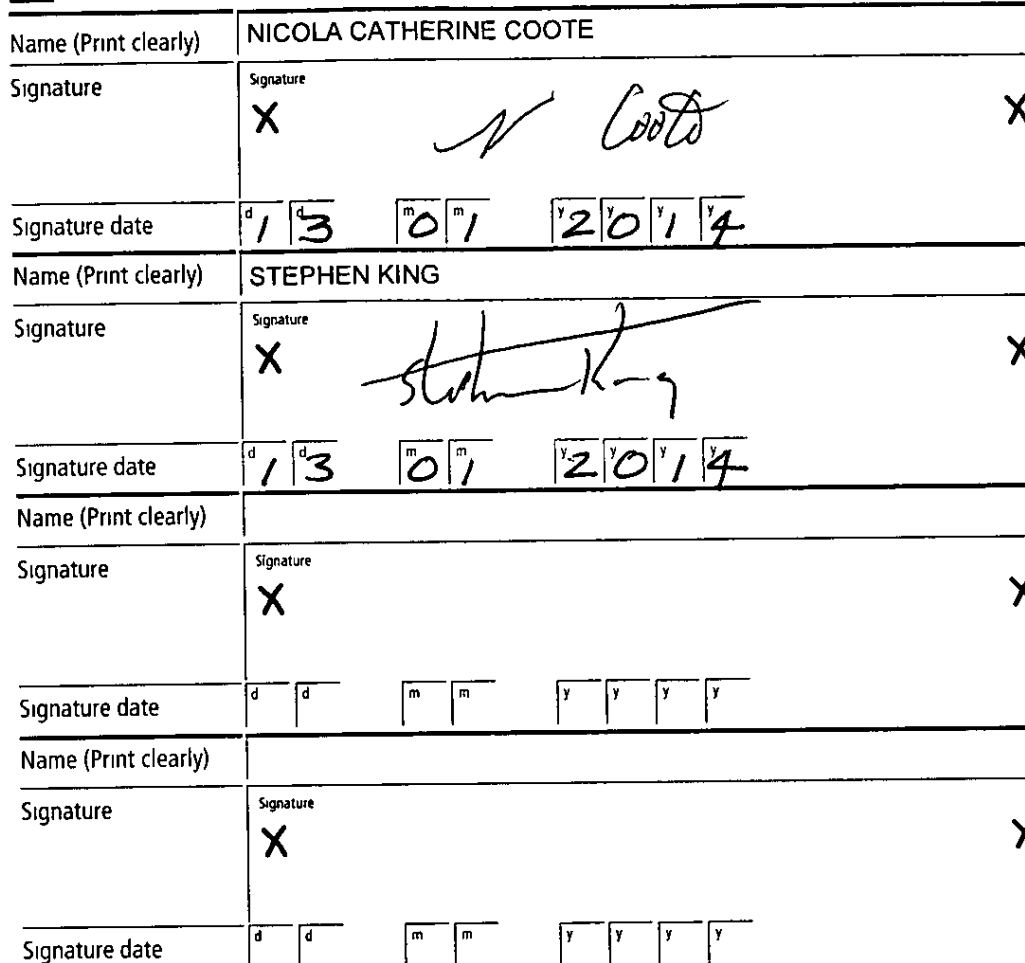 Name (Print clearly) NICOLA CATHERINE COOTE
Signature Signature
X N Coote X
Signature date d 1 d 3 m 0 m 1 y 2 y 0 y 1 y 4
Name (Print clearly) STEPHEN KING
Signature Signature
X Stephen King X
Signature date d 1 d 3 m 0 m 1 y 2 y 0 y 1 y 4
Name (Print clearly)
Signature Signature
X X
Signature date d d m m y y y y
Name (Print clearly)
Signature Signature
X X
Signature date d d m m y y y y